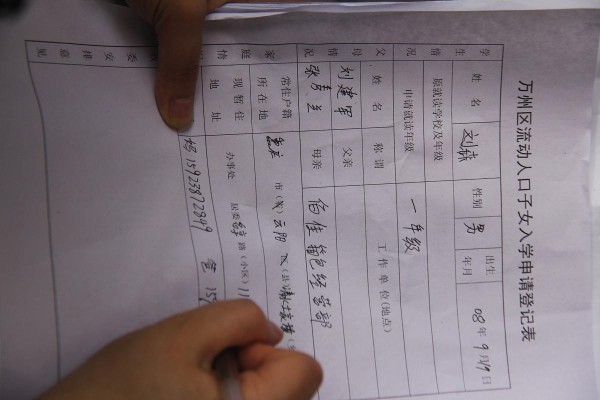 万州区流动人口子女入学申请登记表
学生情况 姓名 刘 性别 男 出生年月 08年9月19日
原就读学校及年级
申请就读年级 一年级
父母情况 姓名 称谓 工作单位(地点)
刘建军 父亲 佰佳箱包经营部
张 兰 母亲
家庭情 常住户籍所在地 重庆 市(省) 云阳 区(县)
现暂住地址 办事处 居委 路(小区) 11
妈 15923872849 爸 15
委安排意见